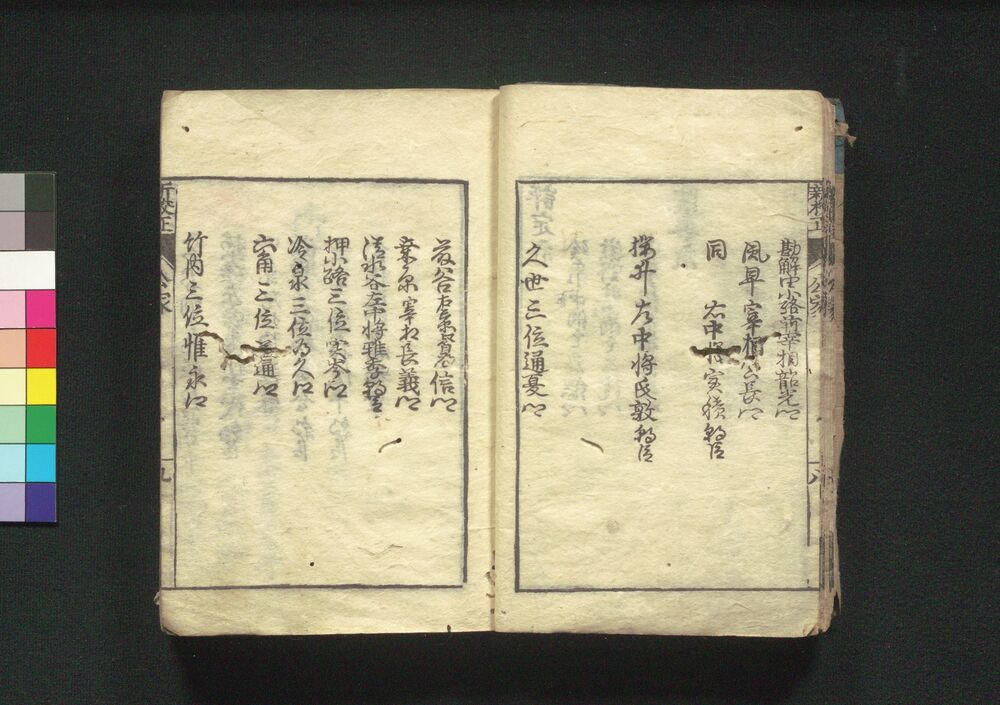 勘解由小路前宰相韶光卿
風早宰相公長卿
同 右中将実積朝臣
桜井右中将氏敦朝臣
久世三位通夏卿
八
新校正 公家
信卿
桑原宰相長義卿
清水谷左中将雅季朝臣
押小路三位実岑卿
冷泉三位為久卿
六角三位益通卿
竹内三位惟永卿
新校正 公家
九